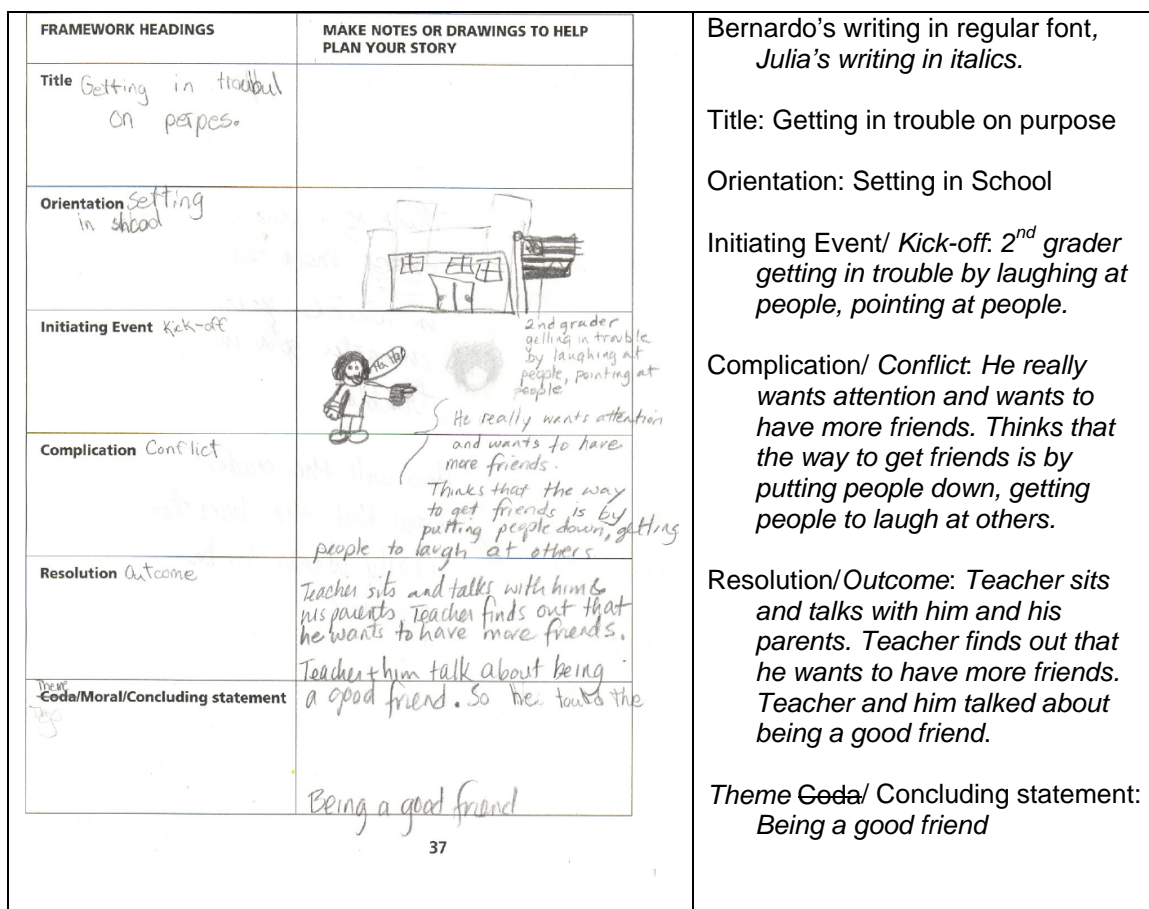 FRAMEWORK HEADINGS
MAKE NOTES OR DRAWINGS TO HELP
PLAN YOUR STORY
Title Getting in troubul
on perpes.
Orientation Setting
in shbool
Initiating Event Kick-off
Ha Ha!
2nd grader
getting in trouble
by laughing at
people, pointing at
people
He really wants attention
and wants to have
more friends.
Complication Conflict
Thinks that the way
to get friends is by
putting people down, getting
people to laugh at others
Resolution Outcome
Teacher sits and talks with him &
his parents. Teacher finds out that
he wants to have more friends.
Teacher + him talk about being
a good friend. So the
Theme
Coda/Moral/Concluding statement
Being a good friend
37
Bernardo's writing in regular font,
Julia's writing in italics.
Title: Getting in trouble on purpose
Orientation: Setting in School
Initiating Event/ Kick-off: 2nd grader
getting in trouble by laughing at
people, pointing at people.
Complication/ Conflict: He really
wants attention and wants to
have more friends. Thinks that
the way to get friends is by
putting people down, getting
people to laugh at others.
Resolution/Outcome: Teacher sits
and talks with him and his
parents. Teacher finds out that
he wants to have more friends.
Teacher and him talked about
being a good friend.
Theme Coda/ Concluding statement:
Being a good friend